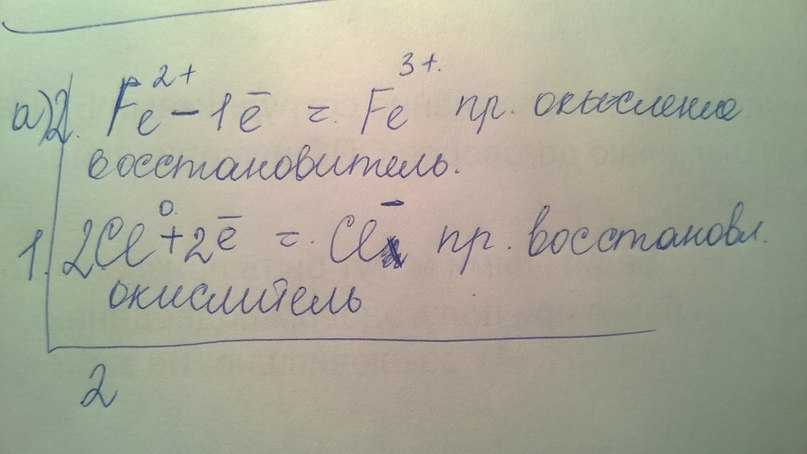 а) 2. Fe²⁺ – 1ē = Fe³⁺ пр. окисление
восстановитель.
1. 2Cl⁰ + 2ē = Cl⁻ пр. восстановл.
окислитель
2